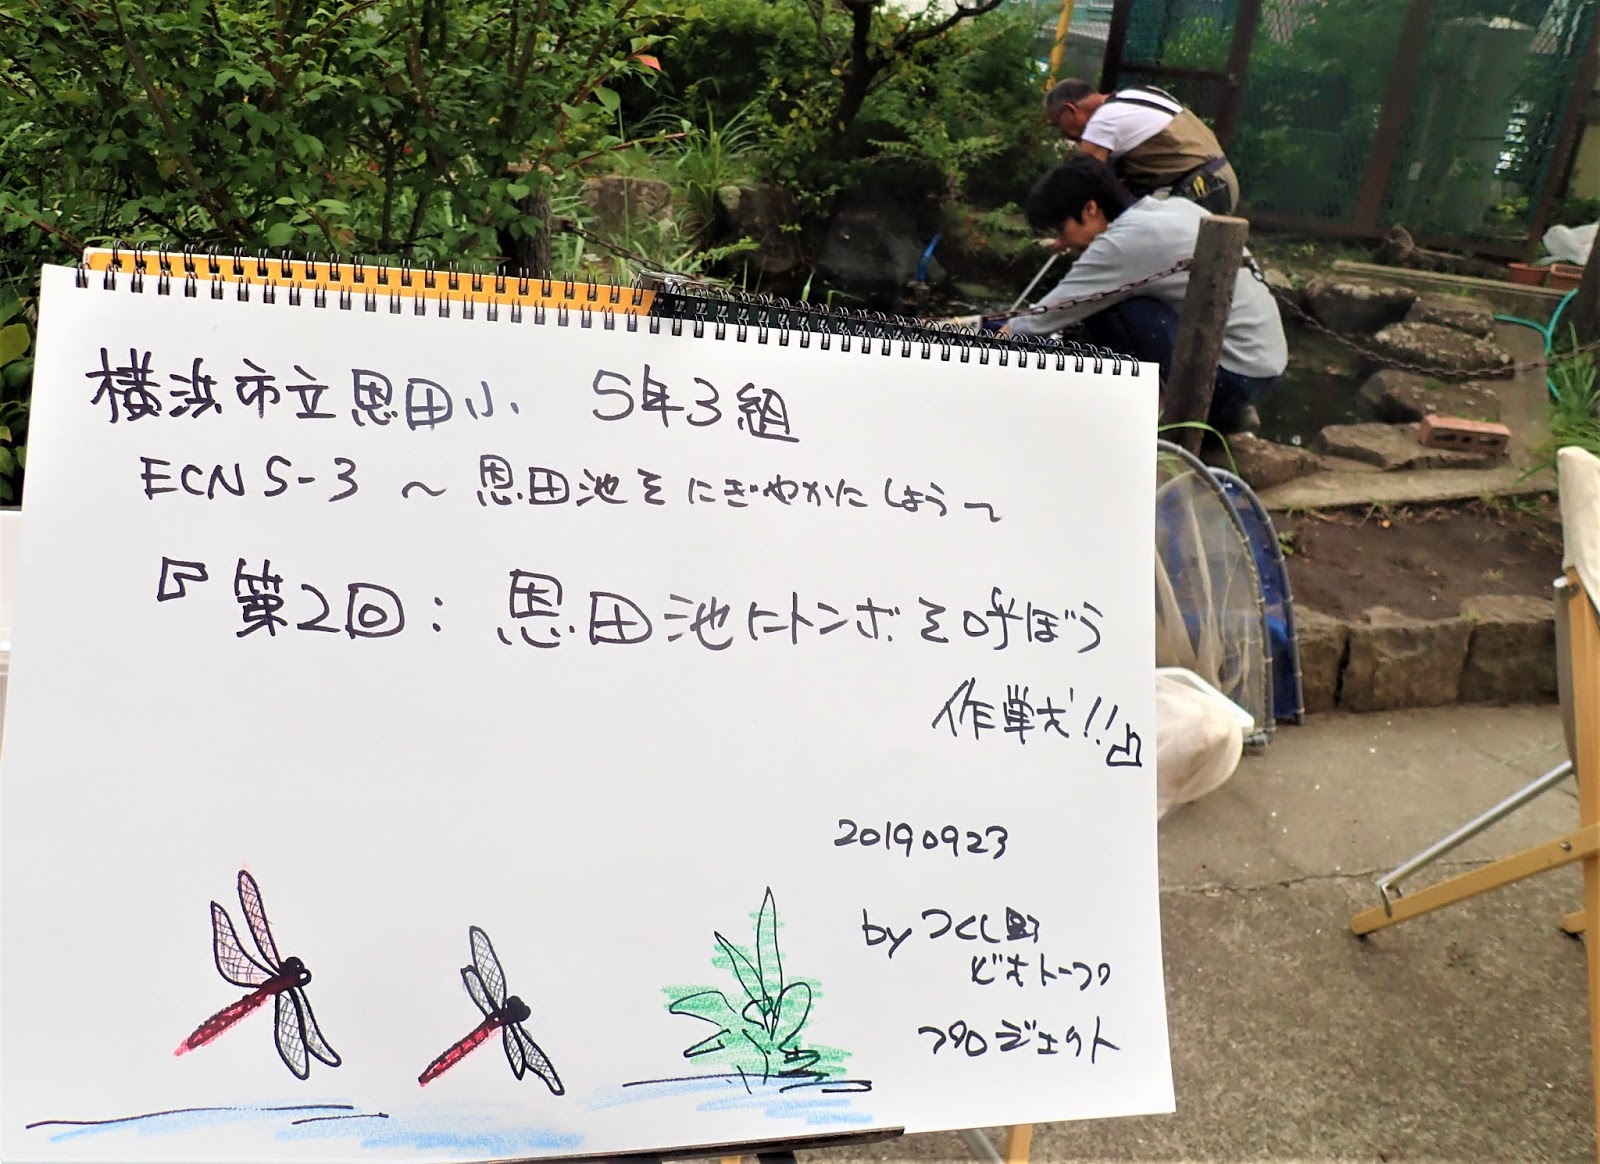 横浜市立恩田小 5年3組
ECN 5-3 ～恩田池をにぎやかにしよう～
『第2回：恩田池にトンボを呼ぼう
作戦!!』
20190923
by つくし野
ビオトープ
プロジェクト